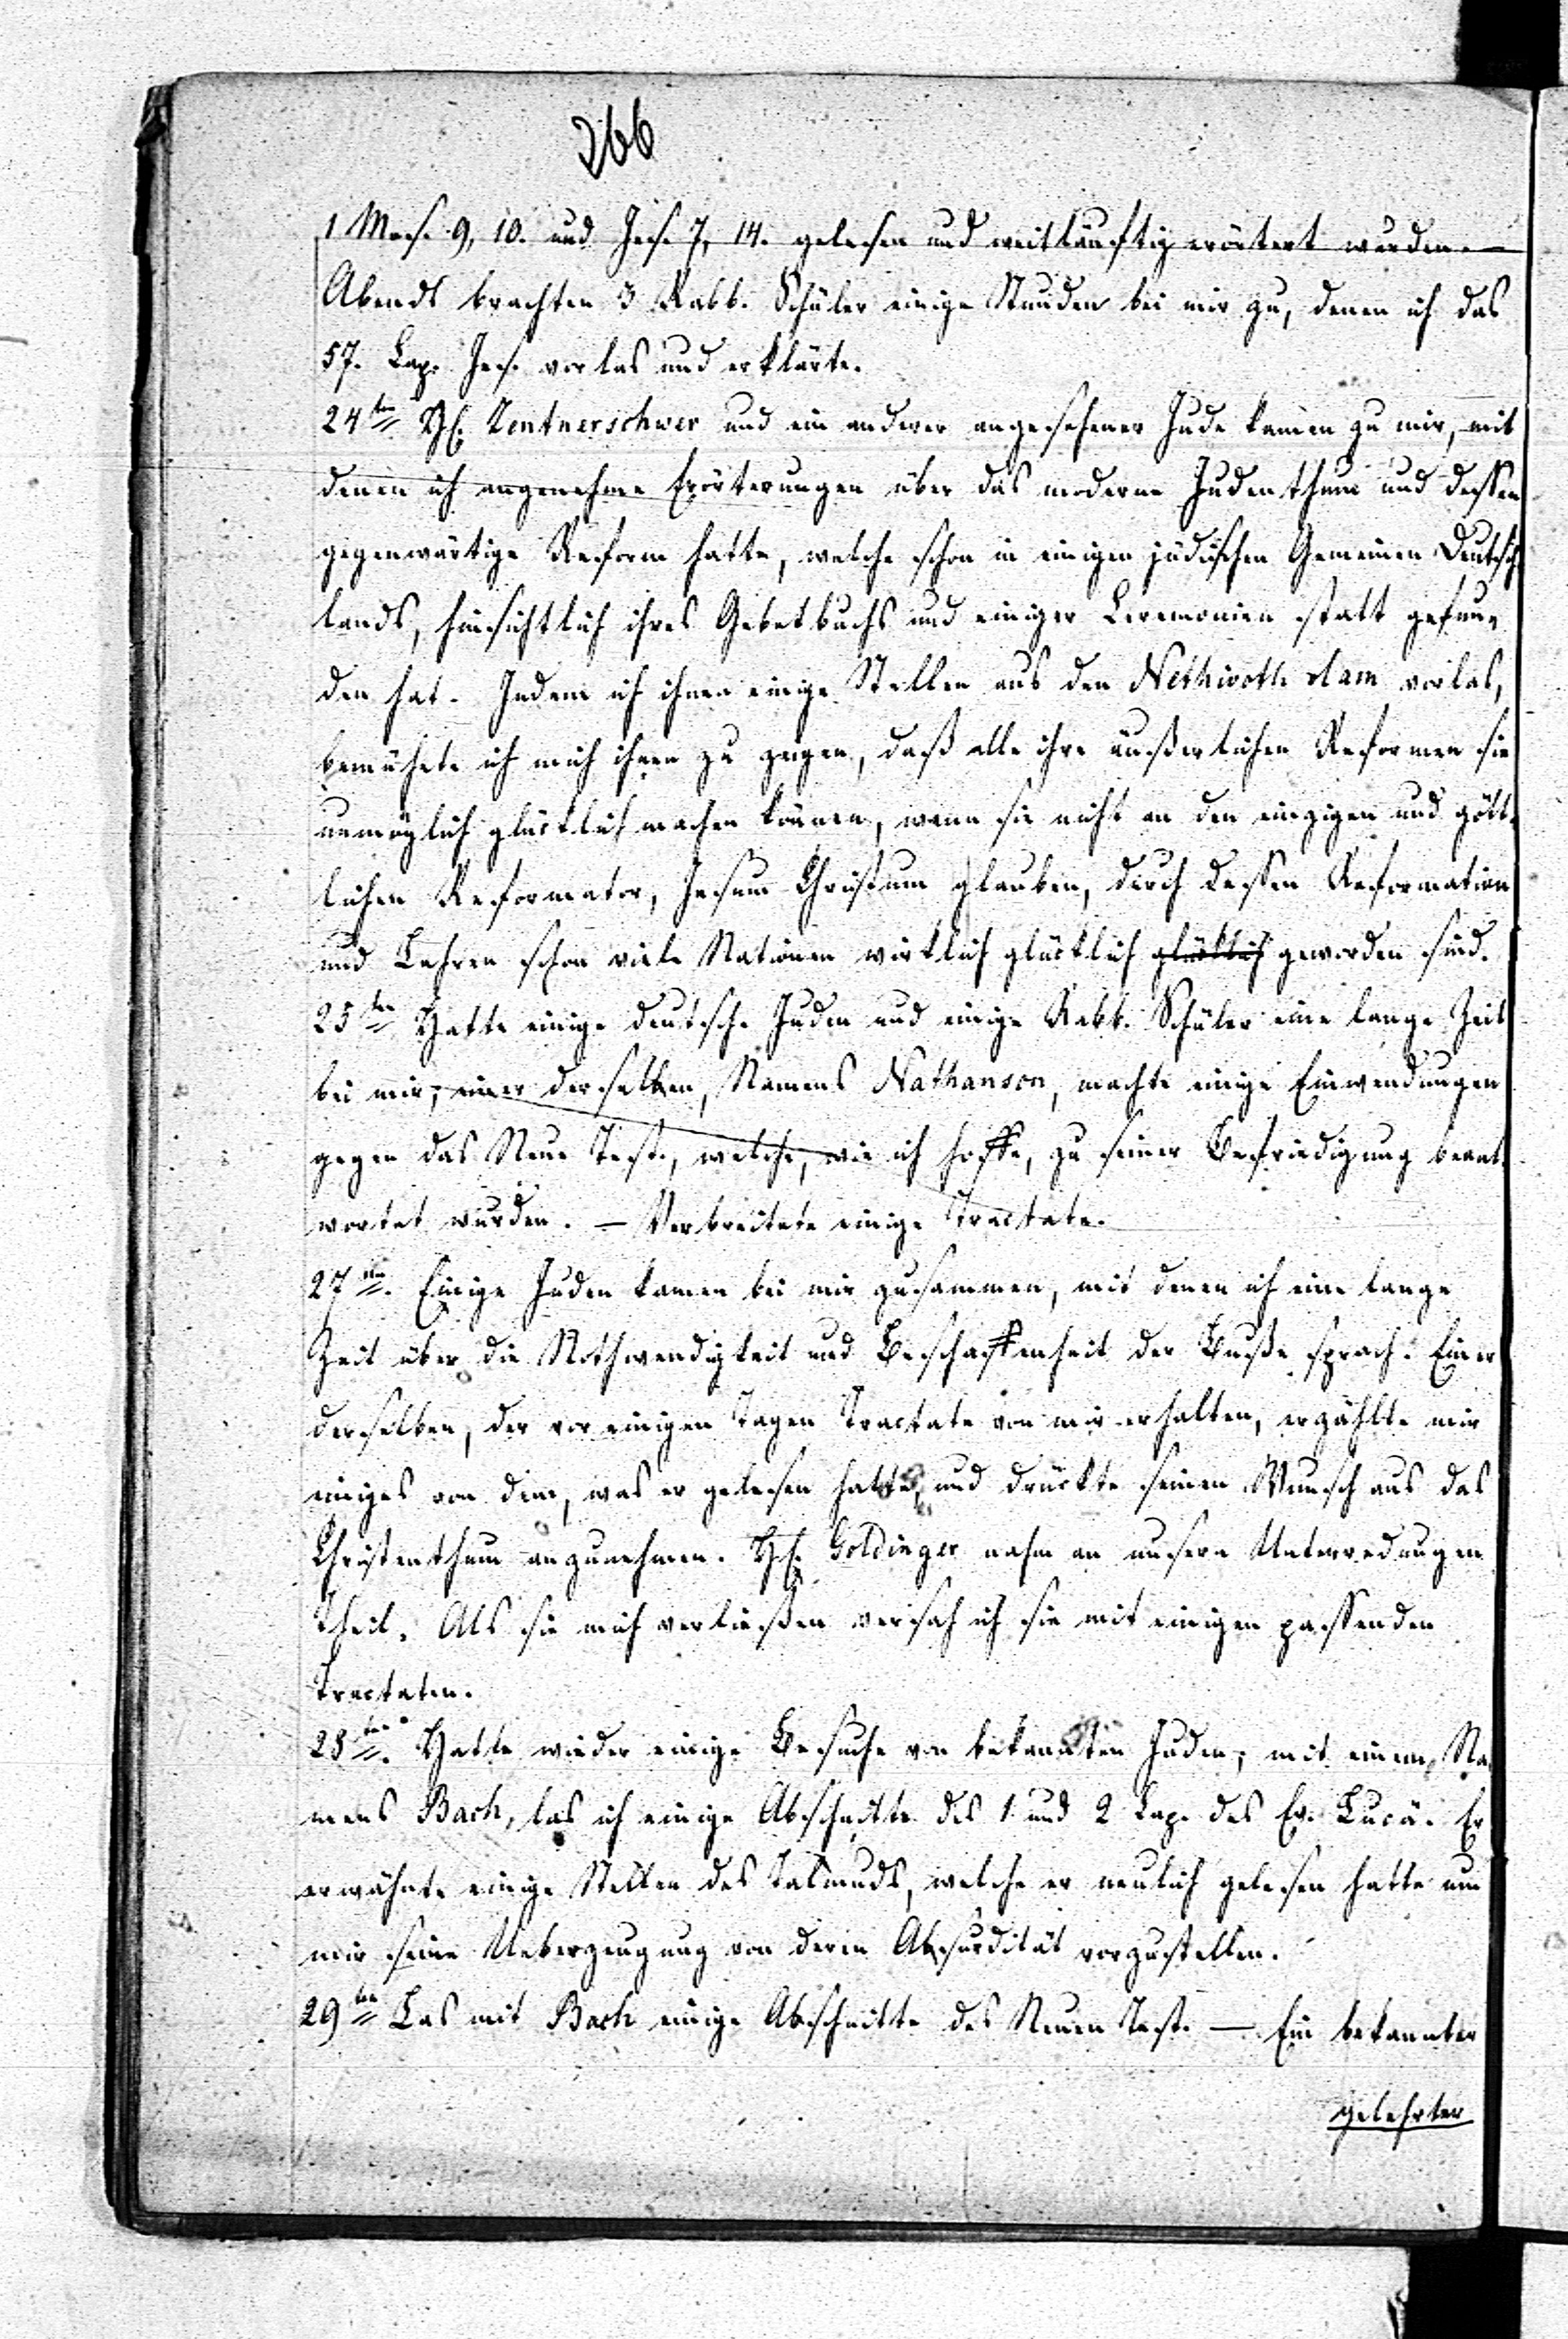 266
1 Mos. 9, 10. und Jes. 7, 14. gelesen und weitläuftig erörtert wurden. —
Abends brachten 3 Rabb. Schüler einige Stunden bei mir zu, denen ich das
57. Cap. Jes. vorlas und erklärte.
24ten H. Zentnerschwer und ein anderer angesehener Jude kamen zu mir, mit
denen ich angenehme Erörterungen über das moderne Judenthum und dessen
gegenwärtige Reform hatte, welche schon in einigen jüdischen Gemeinen Deutsch
lands, hinsichtlich ihres Gebetbuchs und einiger Ceremonien statt gefun-
den hat. Indem ich ihnen einige Stellen aus den Nethivoth olam vorlas,
bemühete ich mich ihnen zu zeigen, daß alle ihre äußerlichen Reformen sie
unmöglich glücklich machen können, wenn sie nicht an den einzigen und gött-
lichen Reformator, Jesum Christum glauben, durch dessen Reformation
und Lehren schon viele Nationen wirklich glücklich glücklich geworden sind.
25ten Hatte einige deutsche Juden und einige Rabb. Schüler eine lange Zeit
bei mir; einer derselben, Namens Nathanson, machte einige Einwendungen
gegen das Neue Test., welche, wie ich hoffe, zu seiner Befriedigung beant-
wortet wurden. — Verbreitete einige Tractate.
27ten. Einige Juden kamen bei mir zusammen, mit denen ich eine lange
Zeit über die Nothwendigkeit und Beschaffenheit der Buße sprach. Einer
derselben, der vor einigen Tagen Tractate von mir erhalten, erzählte mir
einiges von dem, was er gelesen hatte, und drückte seinen Wunsch aus das
Christenthum anzunehmen. H. Goldinger nahm an unsern Unterredungen
Theil. Als sie mich verließen versah ich sie mit einigen passenden
Tractaten.
28ten. Hatte wieder einige Besuche von bekannten Juden; mit einem, Na-
mens Bach, las ich einige Abschnitte des 1 und 2 Cap. des Ev. Lucä. Er
erwähnte einige Stellen des Talmuds, welche er neulich gelesen hatte um
mir seine Ueberzeugung von deren Absurdität vorzustellen.
29ten Las mit Bach einige Abschnitte des Neuen Test. — Ein bekannter
gelehrter